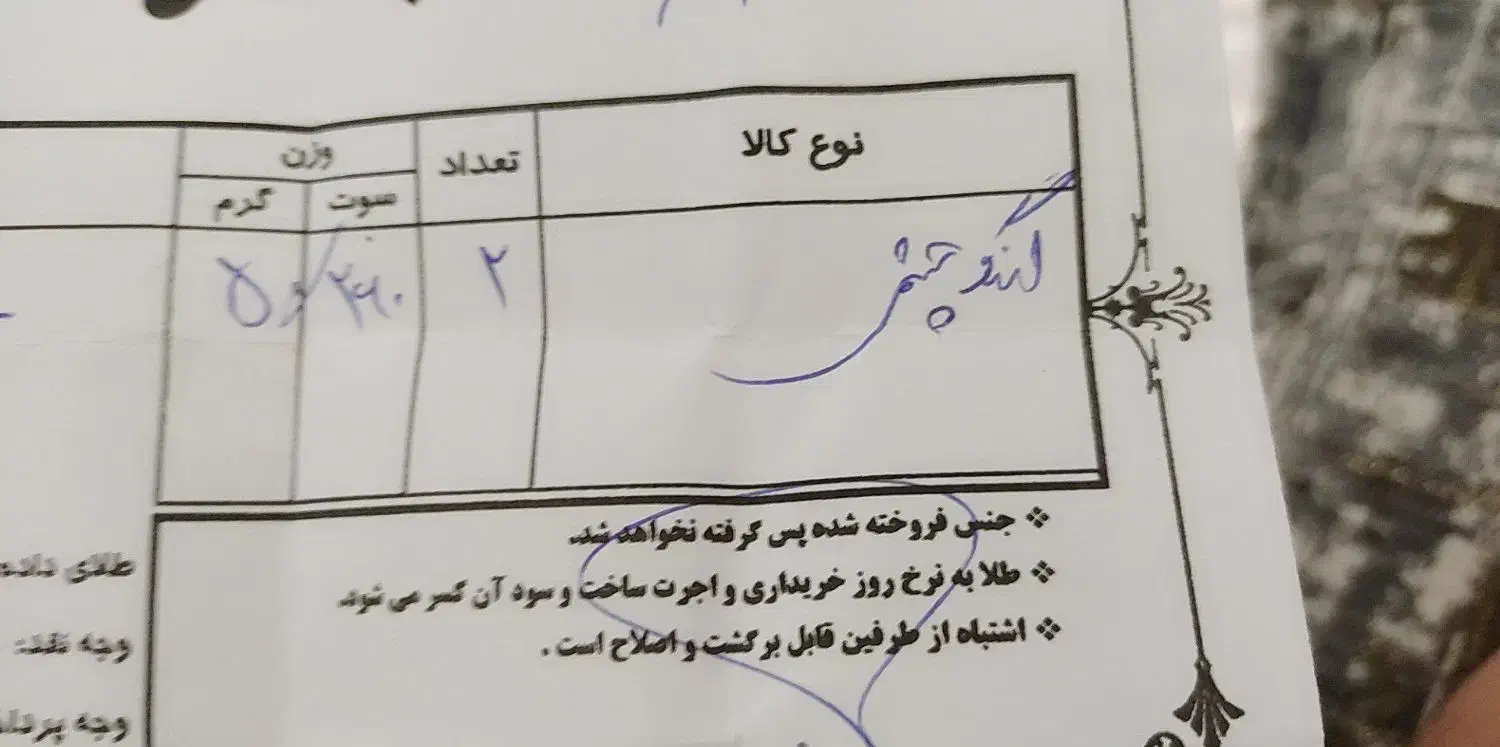 نوع کالا
تعداد
وزن
سوت
گرم
النگو چشمی
۲
۲۶۰
۵
❖ جنس فروخته شده پس گرفته نخواهد شد.
❖ طلا به نرخ روز خریداری و اجرت ساخت و سود آن کسر می شود.
❖ اشتباه از طرفین قابل برگشت و اصلاح است .
طلای داده
وجه نقد:
وجه